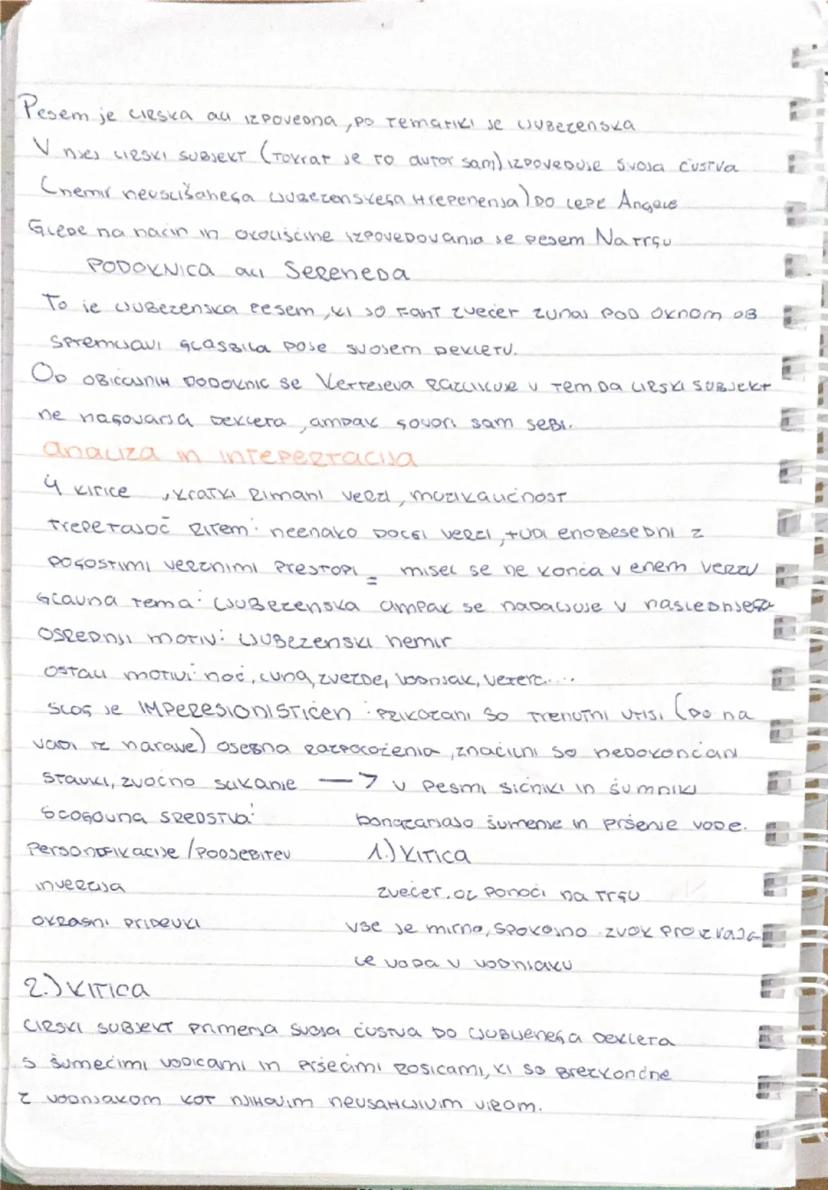 Pesem je lirska ali izpovedna, po tematiki je ljubezenska
V njej lirski subjekt (tokrat je to avtor sam) izpoveduje svoja čustva
(nemir neuslišanega ljubezenskega hrepenenja) do lepe Angele
Glede na način in okoliščine izpovedovanja je pesem Na trgu
PODOKNICA ali Sereneda
To je ljubezenska pesem, ki jo fant zvečer zunaj pod oknom ob
spremljavi glasbila poje svojem dekletu.
Od običajnih podoknic se Kettejeva razlikuje v tem da lirski subjekt
ne nagovarja dekleta, ampak govori sam sebi.
analiza in intepertacija
4 kitice, kratki rimani verzi, muzikaličnost
trepetajoč ritem: neenako dolgi verzi, tudi enobesedni z
pogostimi verznimi prestopi = misel se ne konča v enem verzu
Glavna tema: ljubezenska ampak se nadaljuje v naslednjega
osrednji motiv: ljubezenski nemir
ostali motivi: noč, luna, zvezde, vodnjak, veterc....
slog je IMPERESIONISTIČEN: prikazani so trenutni vtisi (po na
vadi iz narave) osebna razpoloženja, značilni so nedokončani
stavki, zvočno slikanje —> v pesmi sičniki in šumniki
slogovna sredstva: ponazarjajo šumenje in pršenje vode.
Personifikacije / poosebitev 1.) KITICA
inverzija zvečer, oz ponoči na trgu
okrasni pridevki vse je mirno, spokojno zvok proizvaja
le voda v vodnjaku
2.) KITICA
Lirski subjekt primerja svoja čustva do ljubljenega dekleta
s šumečimi vodicami in pršečimi rosicami, ki so brezkončne
z vodnjakom kot njihovim neusahljivim virom.